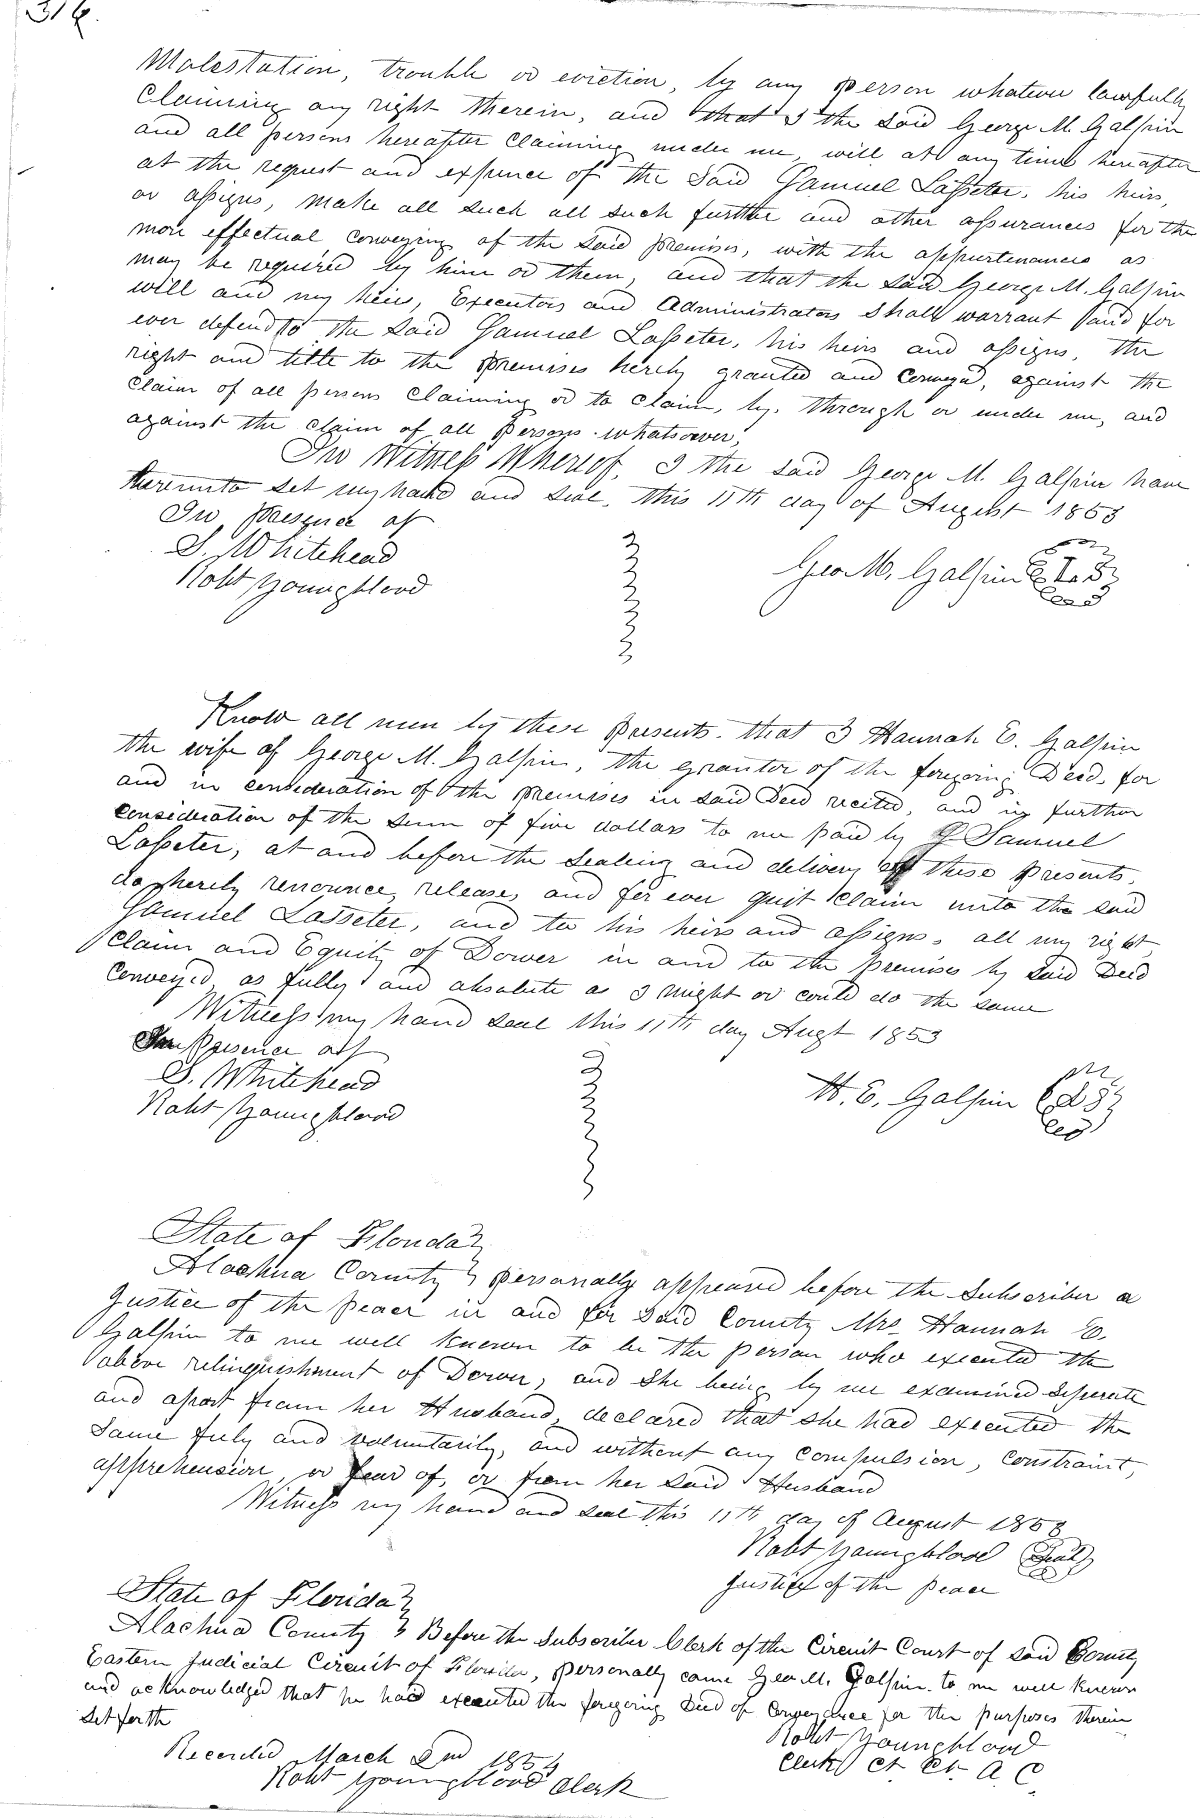 316.
Molestation, trouble or eviction, by any person whatever lawfully
Claiming any right therein, and that I the said George M. Galphin
and all persons hereafter claiming under me, will at any time hereafter
at the request and expence of the Said Samuel Lasseter, his heirs,
or assigns, make all such all such further and other assurances for the
more effectual conveying of the Said premises, with the appurtenances as
may be required by him or them, and that the said George M. Galphin
will and my heirs, Executors and Administrators Shall warrant and for
ever defend to the Said Samuel Lasseter, his heirs and assigns, the
right and title to the premises hereby granted and conveyed, against the
Claim of all persons claiming or to claim, by, through or under me, and
against the claim of all Persons whatsoever,
In Witness Whereof, I the said George M. Galphin have
thereunto set my hand and seal, this 11th day of August 1853
In presence of
S. Whitehead
Robt Youngblood
Geo M. Galphin L S
Know all men by these presents that I Hannah E. Galphin
the wife of George M. Galphin, the grantor of the foregoing Deed, for
and in consideration of the premises in said Deed recited, and in further
consideration of the sum of five dollars to me paid by Samuel
Lasseter, at and before the Sealing and delivery of these presents,
do hereby renounce, release, and for ever quit claim unto the said
Samuel Lasseter, and to his heirs and assigns, all my right
claim and Equity of Dower in and to the premises by said Deed
Conveyed as fully and absolute as I might or could do the same
Witness my hand seal this 11th day Augt 1853
In Presence off
S. Whitehead
Robt Youngblood
H. E. Galphin L S
State of Florida
Alachua County personally appeared before the Subscriber a
Justice of the peace in and for Said County Mrs Hannah E.
Galphin to me well known to be the person who executed the
above relinquishment of Dower, and She being by me examined Seperate
and apart from her Husband, declared that she had executed the
Same fuly and voluntarily, and without any compulsion, constraint,
apprehension, or fear of, or from her said Husband
Witness my hand and seal this 11th day of August 1853
Robt Youngblood Seal
Justice of the peace
State of Florida
Alachua County Before the Subscriber Clerk of the Circuit Court of said County
Eastern Judicial Circuit of Florida, personally came Geo M. Galphin to me well known
and acknowledged that he had executed the foregoing Deed of Conveyance for the purposes therein
Set forth
Robt Youngblood
Clerk Ct Ct A. C.
Recorded March 2nd 1854
Robt Youngblood Clerk